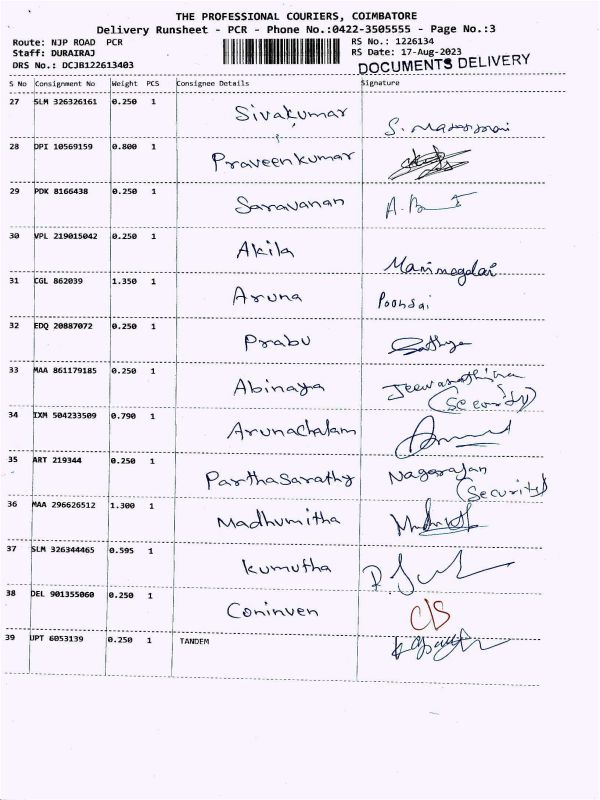 THE PROFESSIONAL COURIERS, COIMBATORE
Delivery Runsheet - PCR - Phone No.:0422-3505555 - Page No.:3
Route: NJP ROAD PCR RS No.: 1226134
Staff: DURAIRAJ RS Date: 17-Aug-2023
DRS No.: DCJB122613403 DOCUMENTS DELIVERY
S No Consignment No Weight PCS Consignee Details Signature
27 SLM 326326161 0.250 1 Sivakumar
28 DPI 10569159 0.800 1 Praveenkumar
29 PDK 8166438 0.250 1 Saravanan
30 VPL 219015042 0.250 1 Akila Manimegdai
31 CGL 862039 1.350 1 Aruna Poonsai
32 EDQ 20887072 0.250 1 Prabu Sathya
33 MAA 861179185 0.250 1 Abinaya
(Security)
34 IXM 504233509 0.790 1 Arunachalam
35 ART 219344 0.250 1 ParthaSarathy Nagarajan
(Security)
36 MAA 296626512 1.300 1 Madhumitha
37 SLM 326344465 0.595 1 Kumutha
38 DEL 901355060 0.250 1 Coninven C/S
39 UPT 6053139 0.250 1 TANDEM